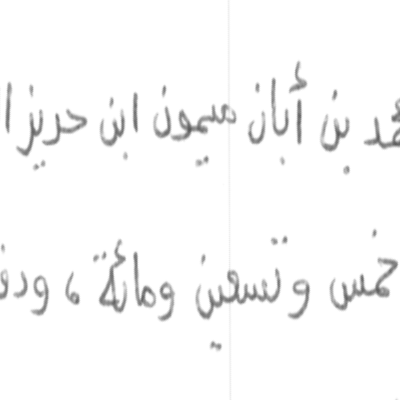 بن أبان ميمون ابن حريز
خمس وتسعين ومائة ،